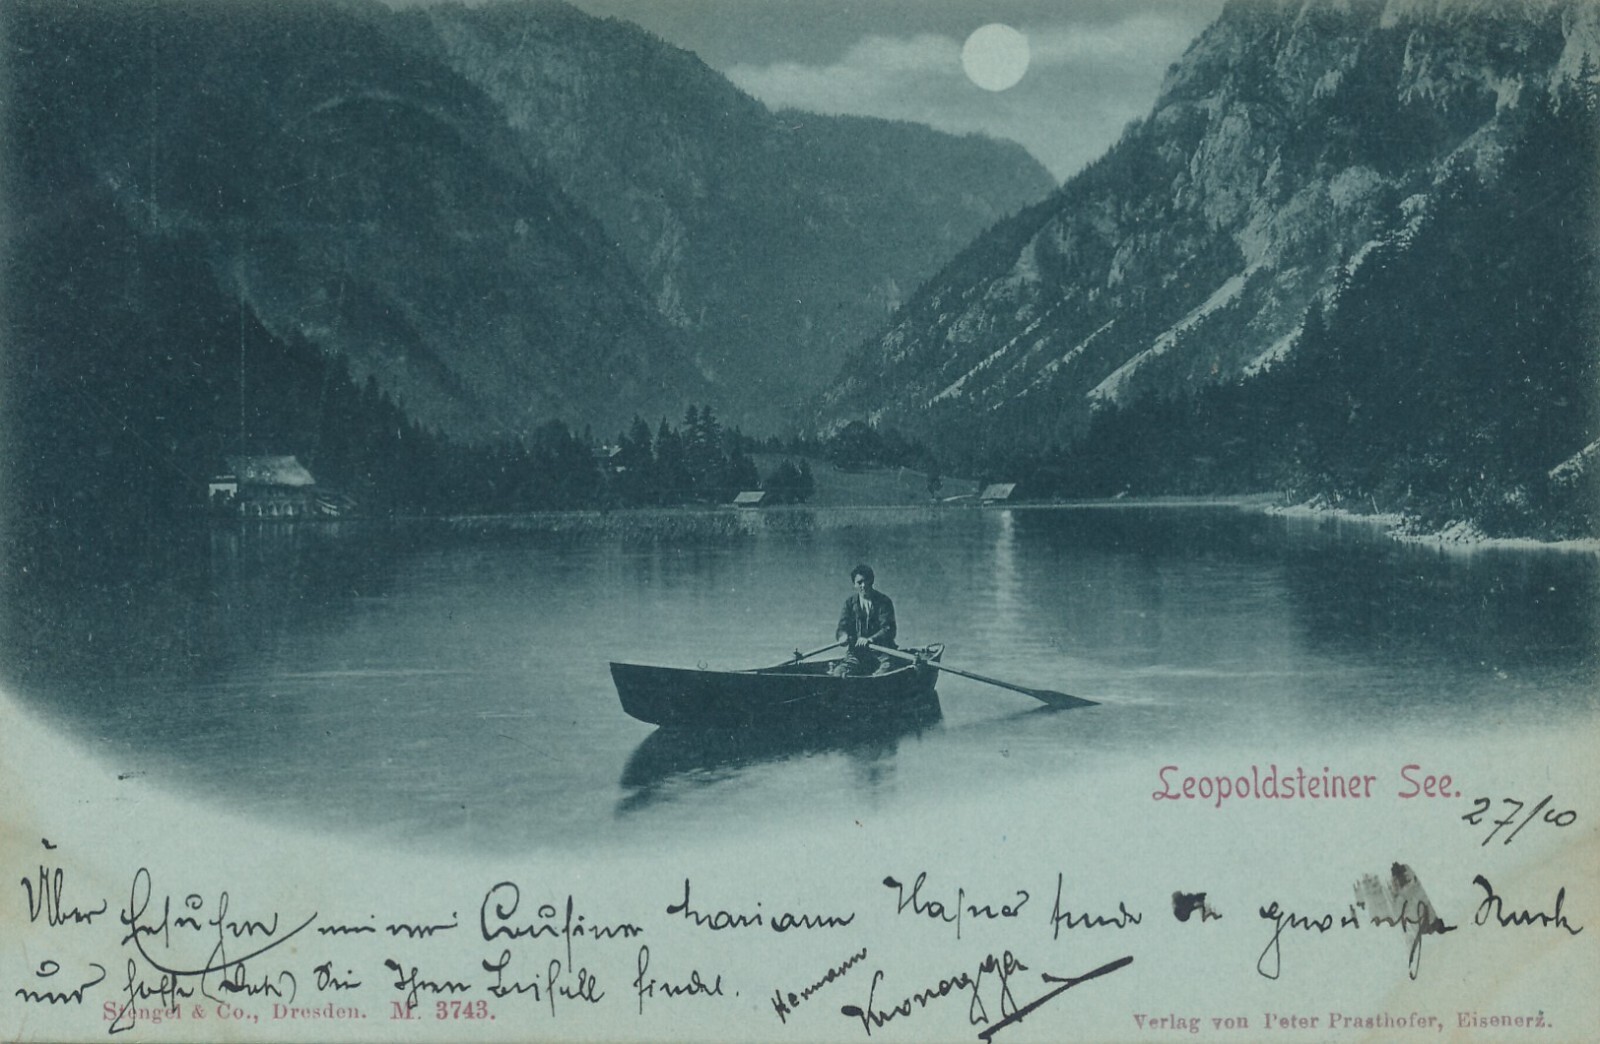 Leopoldsteiner See.
27/10
Über Ersuchen meiner Cousine Mariann Hafner sende die gewünschte Karte
und hoffe (daß) Sie Ihren Beifall findet.
Hermann
Stengel & Co., Dresden. M. 3743.
Verlag von Peter Prasthofer, Eisenerz.